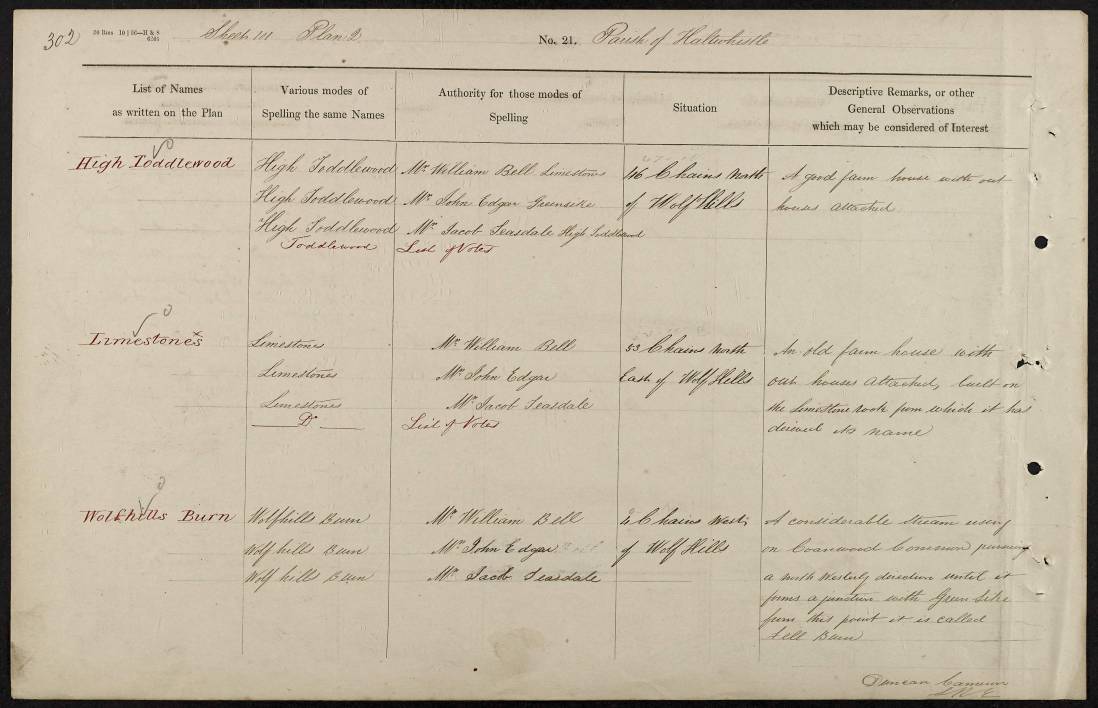 302
20 Bks 10 | 56—H & S
6205
Sheet 111 Plan 2
No. 21.
Parish of Haltwhistle
List of Names
as written on the Plan
Various modes of
Spelling the same Names
Authority for those modes of
Spelling
Situation
Descriptive Remarks, or other
General Observations
which may be considered of Interest
High Toddlewood
High Toddlewood
High Toddlewood
High Toddlewood
Toddlewood
Mr. William Bell Limestones
Mr. John Edgar Greensike
Mr. Jacob Teasdale High Toddlewood
List of Notes
46 Chains North
of Wolf Hills
A good farm house with out
houses attached
Limestones
Limestones
Limestones
Limestones
Do
Mr. William Bell
Mr. John Edgar
Mr. Jacob Teasdale
List of Notes
53 Chains North
East of Wolf Hills
An old farm house with
out houses attached, built on
the Limestone rock from which it has
derived its name
Wolfhills Burn
Wolfhills Burn
Wolf hills Burn
Wolf hills Burn
Mr. William Bell
Mr. John Edgar
Mr. Jacob Teasdale
Chains West
of Wolf Hills
A considerable stream rising
on Coanwood Common pursuing
a north Westerly direction until it
forms a junction with Green Sike
from this point it is called
Fell Burn
Duncan Cameron